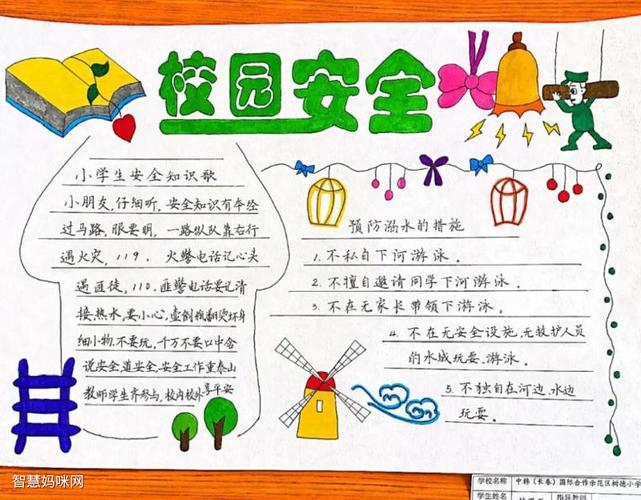 校园安全
小学生安全知识歌
小朋友,仔细听,安全知识有本经
过马路,眼要明,一路纵队靠右行
遇火灾,119,火警电话记心头
遇匪徒,110,匪警电话要记清
接热水,要小心,壶倒瓶翻烫坏身
细小物,不要玩,千万不要口中含
说安全,道安全,安全工作重泰山
教师学生齐参与,校内校外享平安
预防溺水的措施
1. 不私自下河游泳。
2. 不擅自邀请同学下河游泳。
3. 不在无家长带领下游泳。
4. 不在无安全设施、无救护人员
的水域玩耍、游泳。
5. 不独自在河边、水边
玩耍。
智慧妈咪网
学校名称 中韩(长春)国际合作示范区树德小学
学生姓名
指导教师